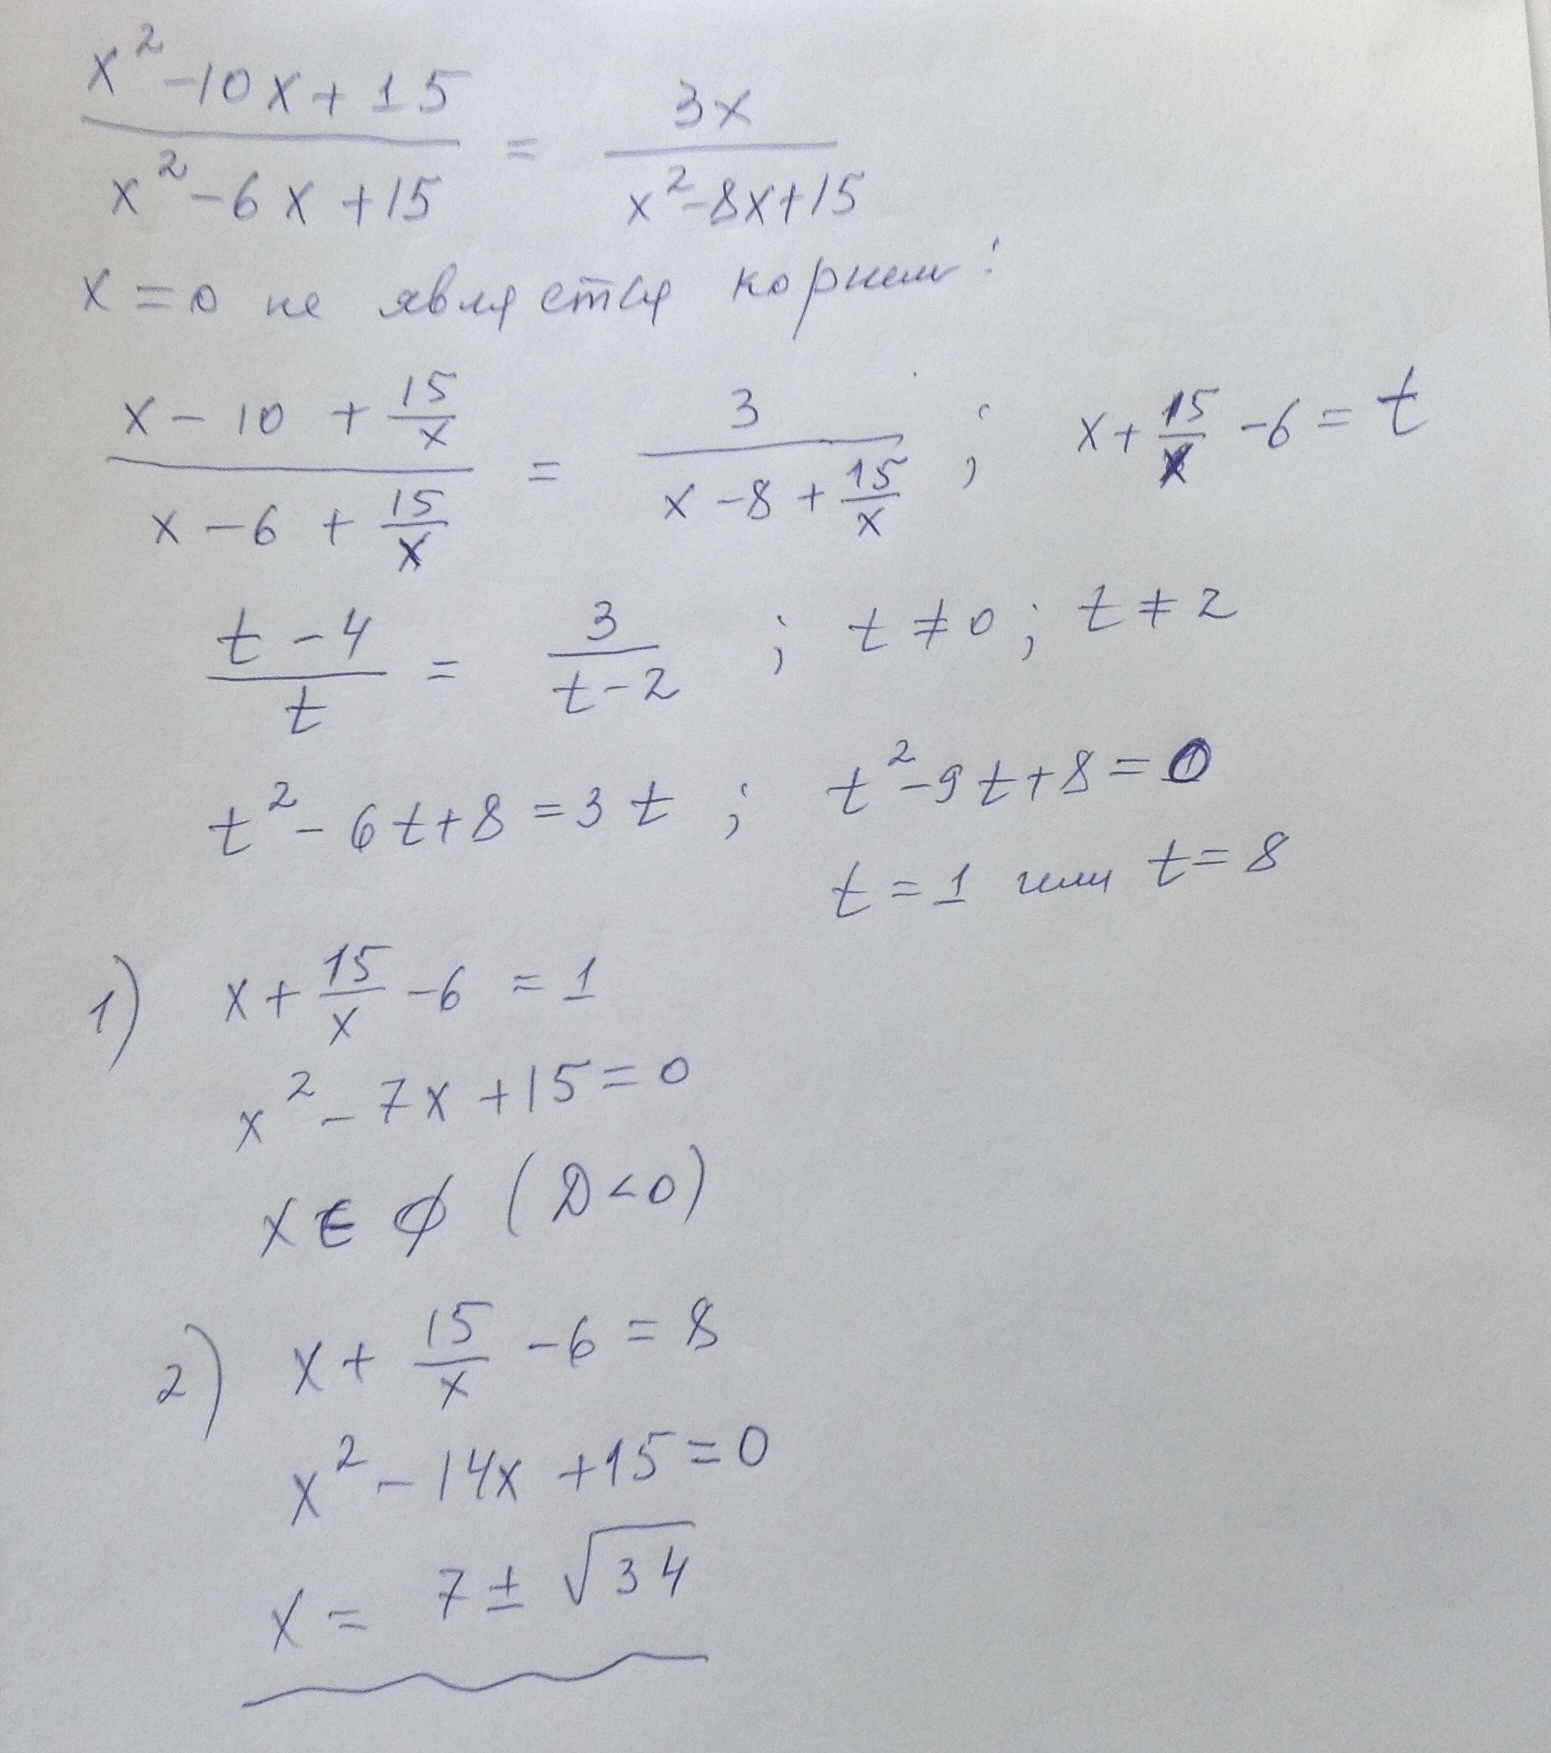 (x² - 10x + 15)/(x² - 6x + 15) = 3x/(x² - 8x + 15)
x = 0 не является корнем:
(x - 10 + 15/x)/(x - 6 + 15/x) = 3/(x - 8 + 15/x) ; x + 15/x - 6 = t
(t - 4)/t = 3/(t - 2) ; t ≠ 0 ; t ≠ 2
t² - 6t + 8 = 3t ; t² - 9t + 8 = 0
t = 1 или t = 8
1) x + 15/x - 6 = 1
x² - 7x + 15 = 0
x ∈ ∅ (D < 0)
2) x + 15/x - 6 = 8
x² - 14x + 15 = 0
x = 7 ± √34